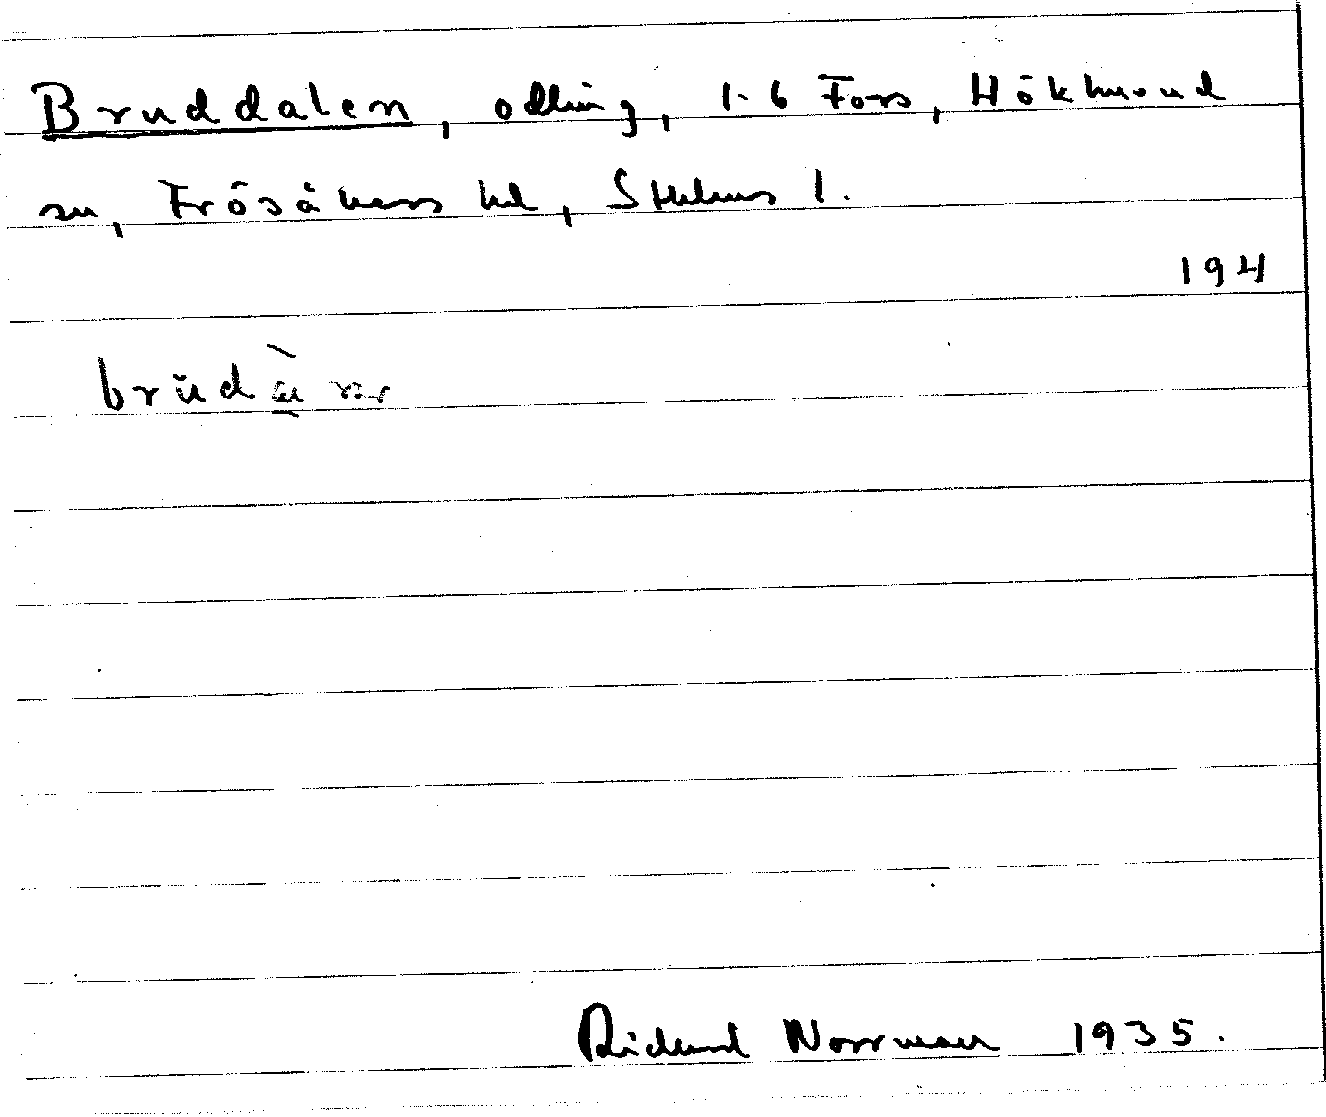 Bruddalen, odling, 1-6 Fors, Hökhuvud
sn, Frösåkers hd, Sthlms l.
194
Rickard Norrman 1935.